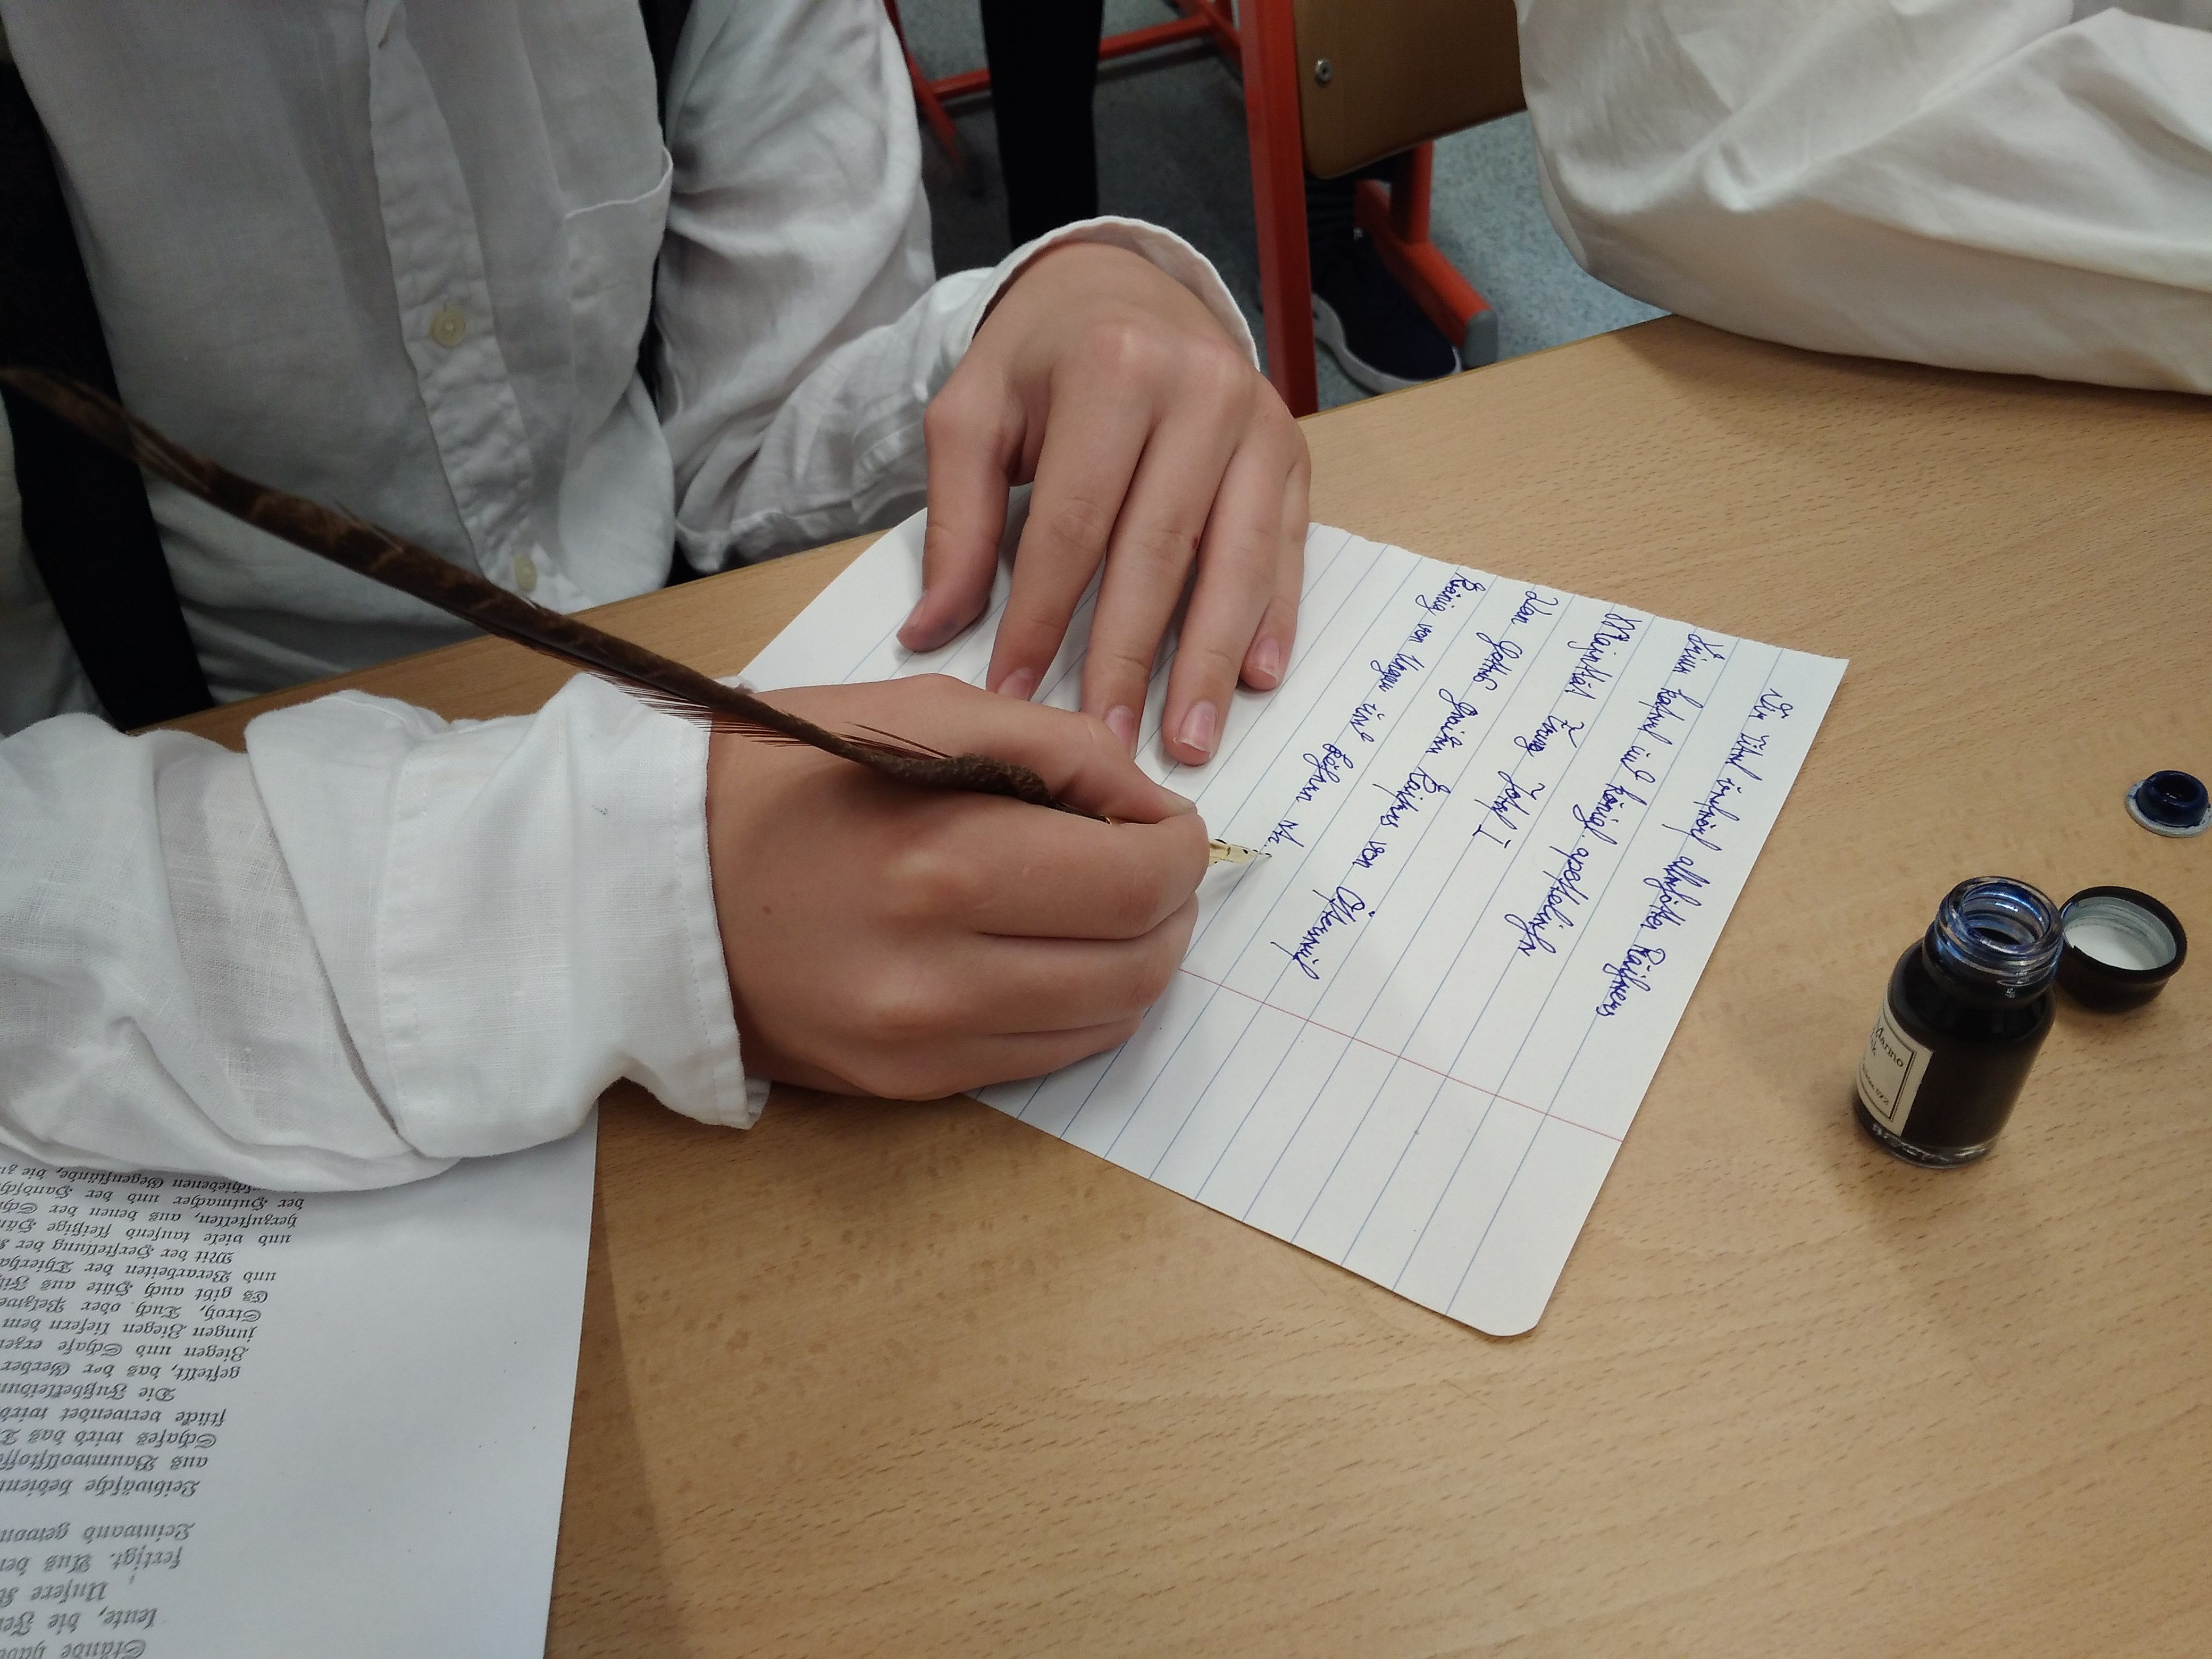 Die Titel allerhöchsten Kaisers
Seiner kaiserl und königl. apostolische
Majestät Franz Josef I
Von Gottes Gnaden Kaiser von Österreich
König von Ungarn und Böhmen etc...
Stände habe
leute, die Fe
Unsere K
fertigt. Aus der
Leinwand gewon
Leibwäsche bedient
aus Baumwollstoffe
Schafes wird das L
stücke verwendet wird
Die Fußbekleidun
gestellt, das der Gerber
Ziegen und Schafe erzeu
jungen Ziegen liefern dem
Stroh, Tuch oder Pelzwe
Es gibt auch Hüte aus Fil
und Verarbeiten der Thierha
Mit der Herstellung der K
und viele tausend fleißige Hän
herzustellen, aus denen der Sch
der Hutmacher und der Handsch
schiedenen Gegenstände, die z
Marino